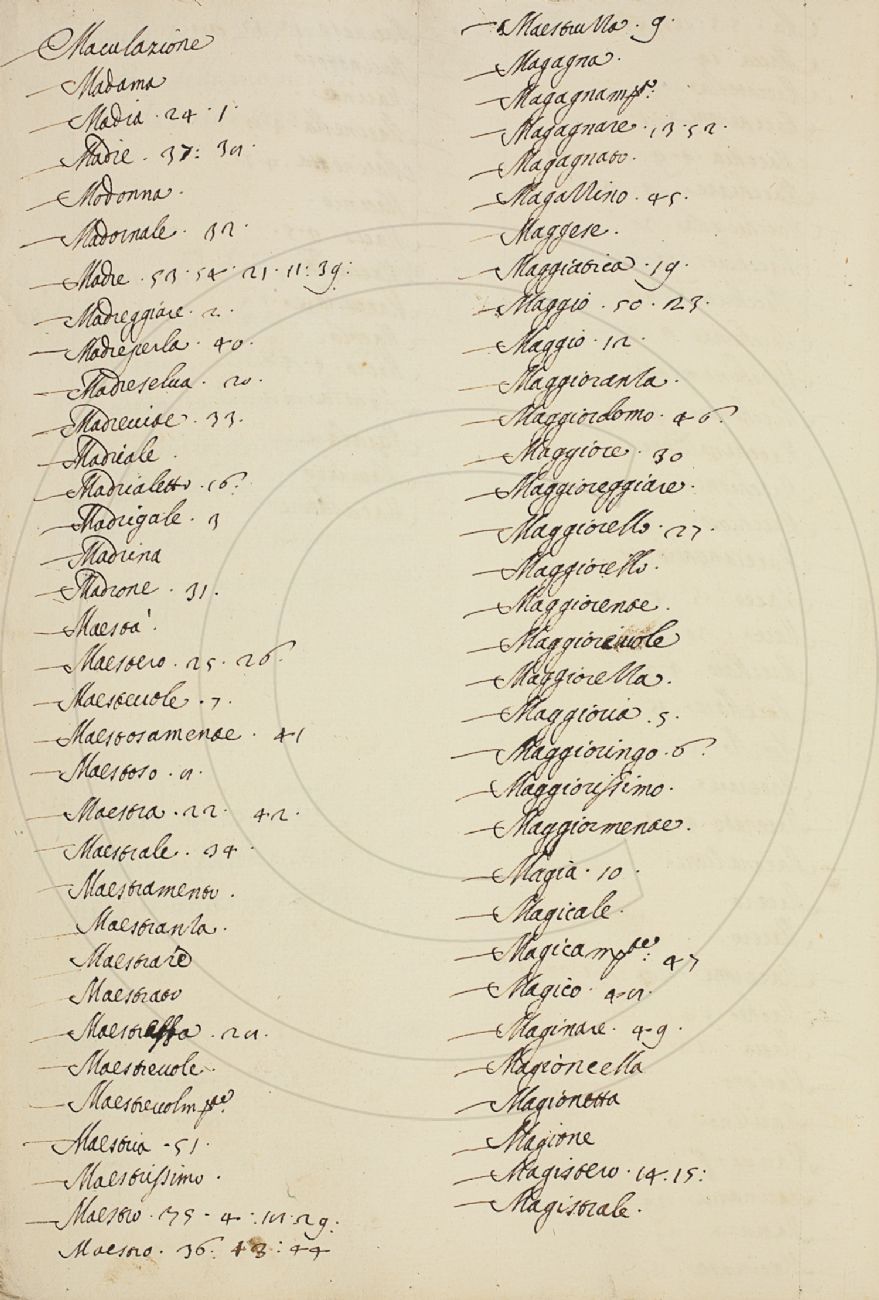 Maculazione
Madama
Madia . 24 . 1 .
Madie . 37 : 38 .
Modonna .
Madornale . 32 .
Madre . 53 . 54 . 21 . 11 : 39 :
Madreggiare . 2 .
Madreperla . 40 .
Madreselva . 20 .
Madrevite . 33 .
Madriale .
Madrialetto . 16 .
Madrigale . 3
Madrina
Madrone . 31 .
Maestà .
Maestero . 25 . 26 .
Maestevole . 7 .
Maestosamente . 41
Maestoso . 8 .
Maestra . 22 . 42 .
Maestrale . 34 .
Maestramento .
Maestranza .
Maestrare
Maestrato
Maestressa . 28 .
Maestrevole .
Maestrevolmte :
Maestria . 51 .
Maestrissimo .
Maestro . 35 . 4 . 18 . 29 .
Maestro . 36 : 43 : 44
Maestruzza . 9 .
Magagna .
Magagnamto :
Magagnare . 13 . 52 .
Magagnato .
Magazzino . 45 .
Maggese .
Maggiatica . 19 .
Maggio . 50 . 23 .
Maggio . 12 .
Maggioranza .
Maggiordomo . 46 .
Maggiore . 30
Maggioreggiare .
Maggiorello . 27 .
Maggiorello .
Maggiorente .
Maggiorevole
Maggiorezza .
Maggioria . 5 .
Maggioringo . 6 .
Maggiorissimo .
Maggiormente .
Magia . 10 .
Magicale .
Magicamte : 47
Magico . 48 .
Maginare . 49 .
Magioncella
Magionetta
Magione
Magistero . 14 . 15 :
Magistrale .